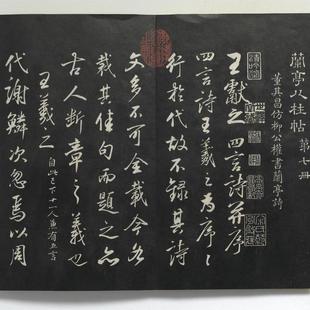 蘭亭八柱帖 第七冊
董其昌仿柳公權書蘭亭詩
王獻之四言詩并序
四言詩王羲之為序序
行於代故不錄其詩
文多不可全載今各
裁其佳句而題之亦
古人斷章之義也
王羲之 自此已下十一人並有五言
代謝鱗次忽焉以周